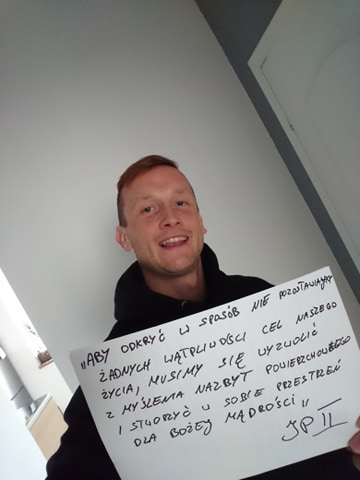 „ABY ODKRYĆ W SPOSÓB NIE POZOSTAWIAJĄCY
ŻADNYCH WĄTPLIWOŚCI CEL NASZEGO
ŻYCIA, MUSIMY SIĘ WYZWOLIĆ
Z MYŚLENIA NAZBYT POWIERZCHOWNEGO
I STWORZYĆ W SOBIE PRZESTRZEŃ
DLA BOŻEJ MĄDROŚCI”
JP II